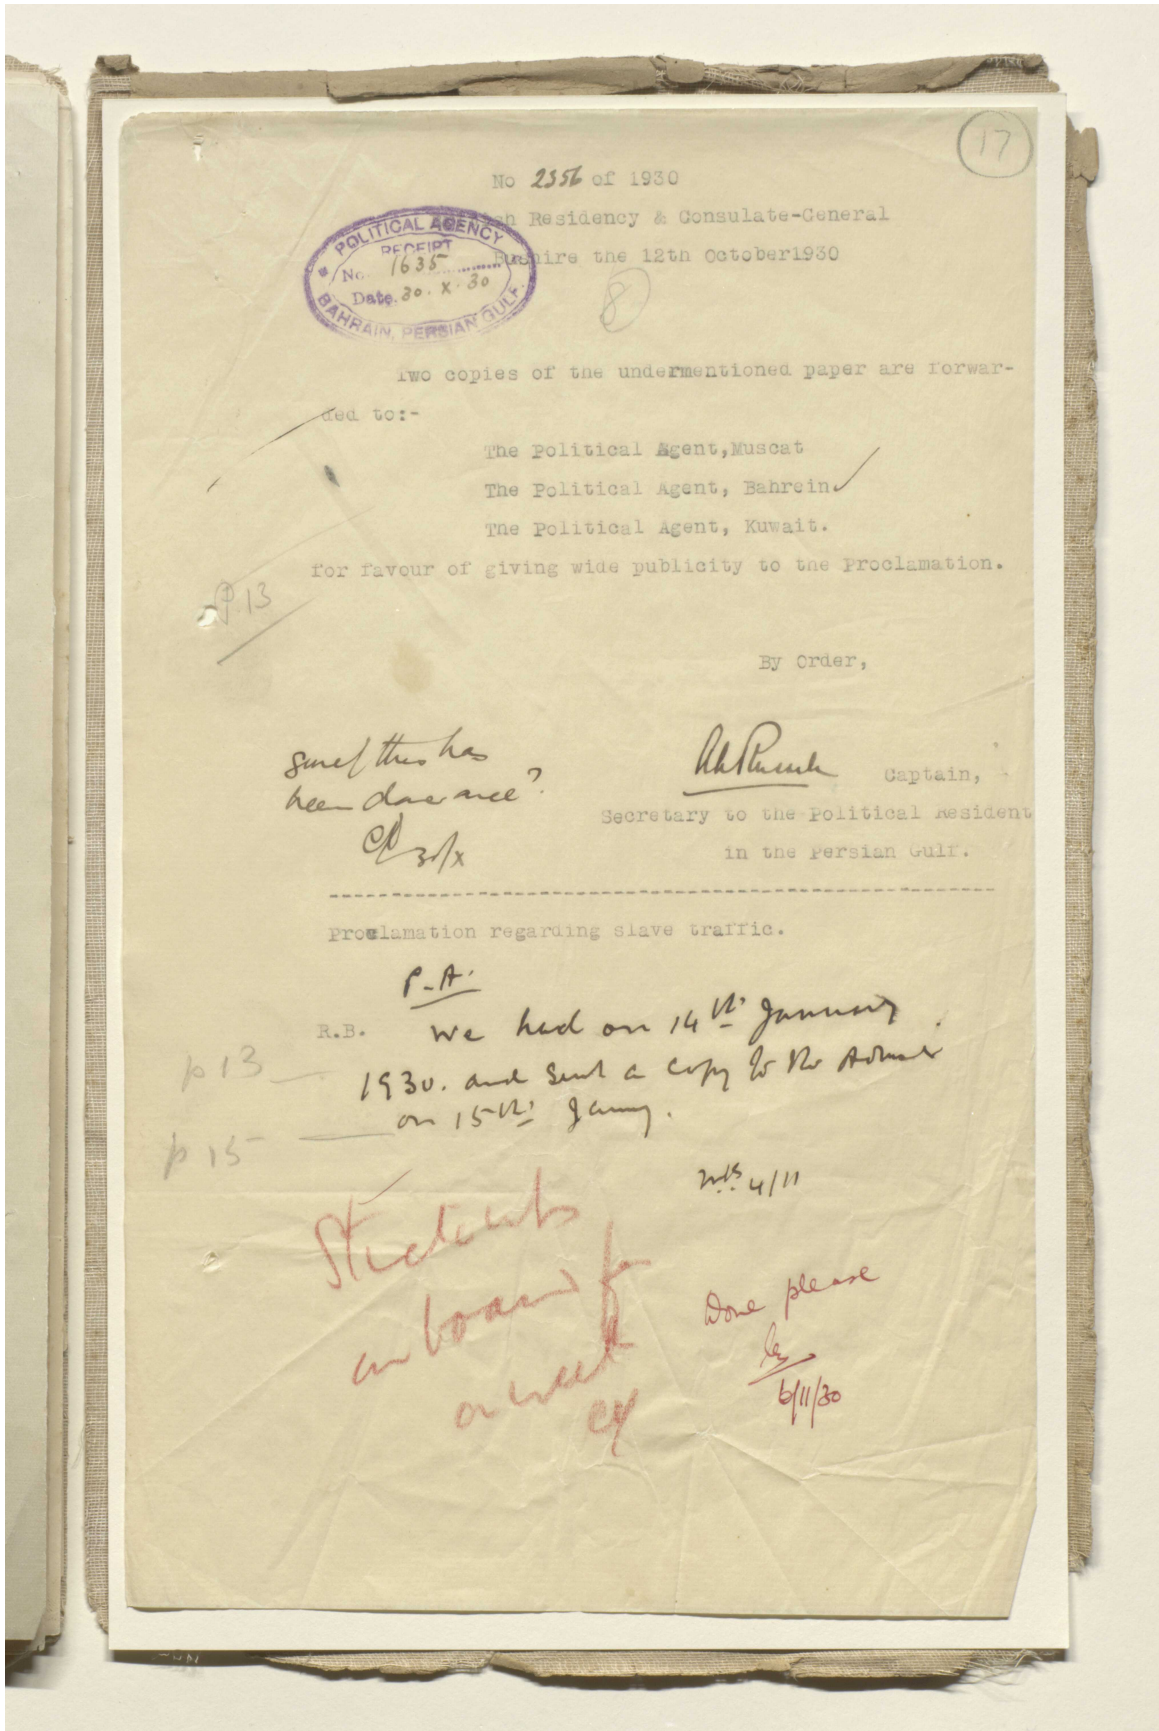 17
No 2356 of 1930
Residency & Consulate-General
Bushire the 12th October1930
POLITICAL AGENCY
RECEIPT
No. 1635
Date. 30. X. 30
BAHRAIN, PERSIAN GULF.
8
Two copies of the undermentioned paper are forwar-
ded to:-
The Political Agent,Muscat
The Political Agent, Bahrein
The Political Agent, Kuwait.
for favour of giving wide publicity to the Proclamation.
P.13
By Order,
Captain,
Secretary to the Political Resident
in the Persian Gulf.
surely this has
been done once?
30/x
Proclamation regarding slave traffic.
P.A.
R.B. We had on 14th January
p 13
1930. and sent a copy to the
on 15th
p 15
4/11
on board for
a week
Done please
6/11/30